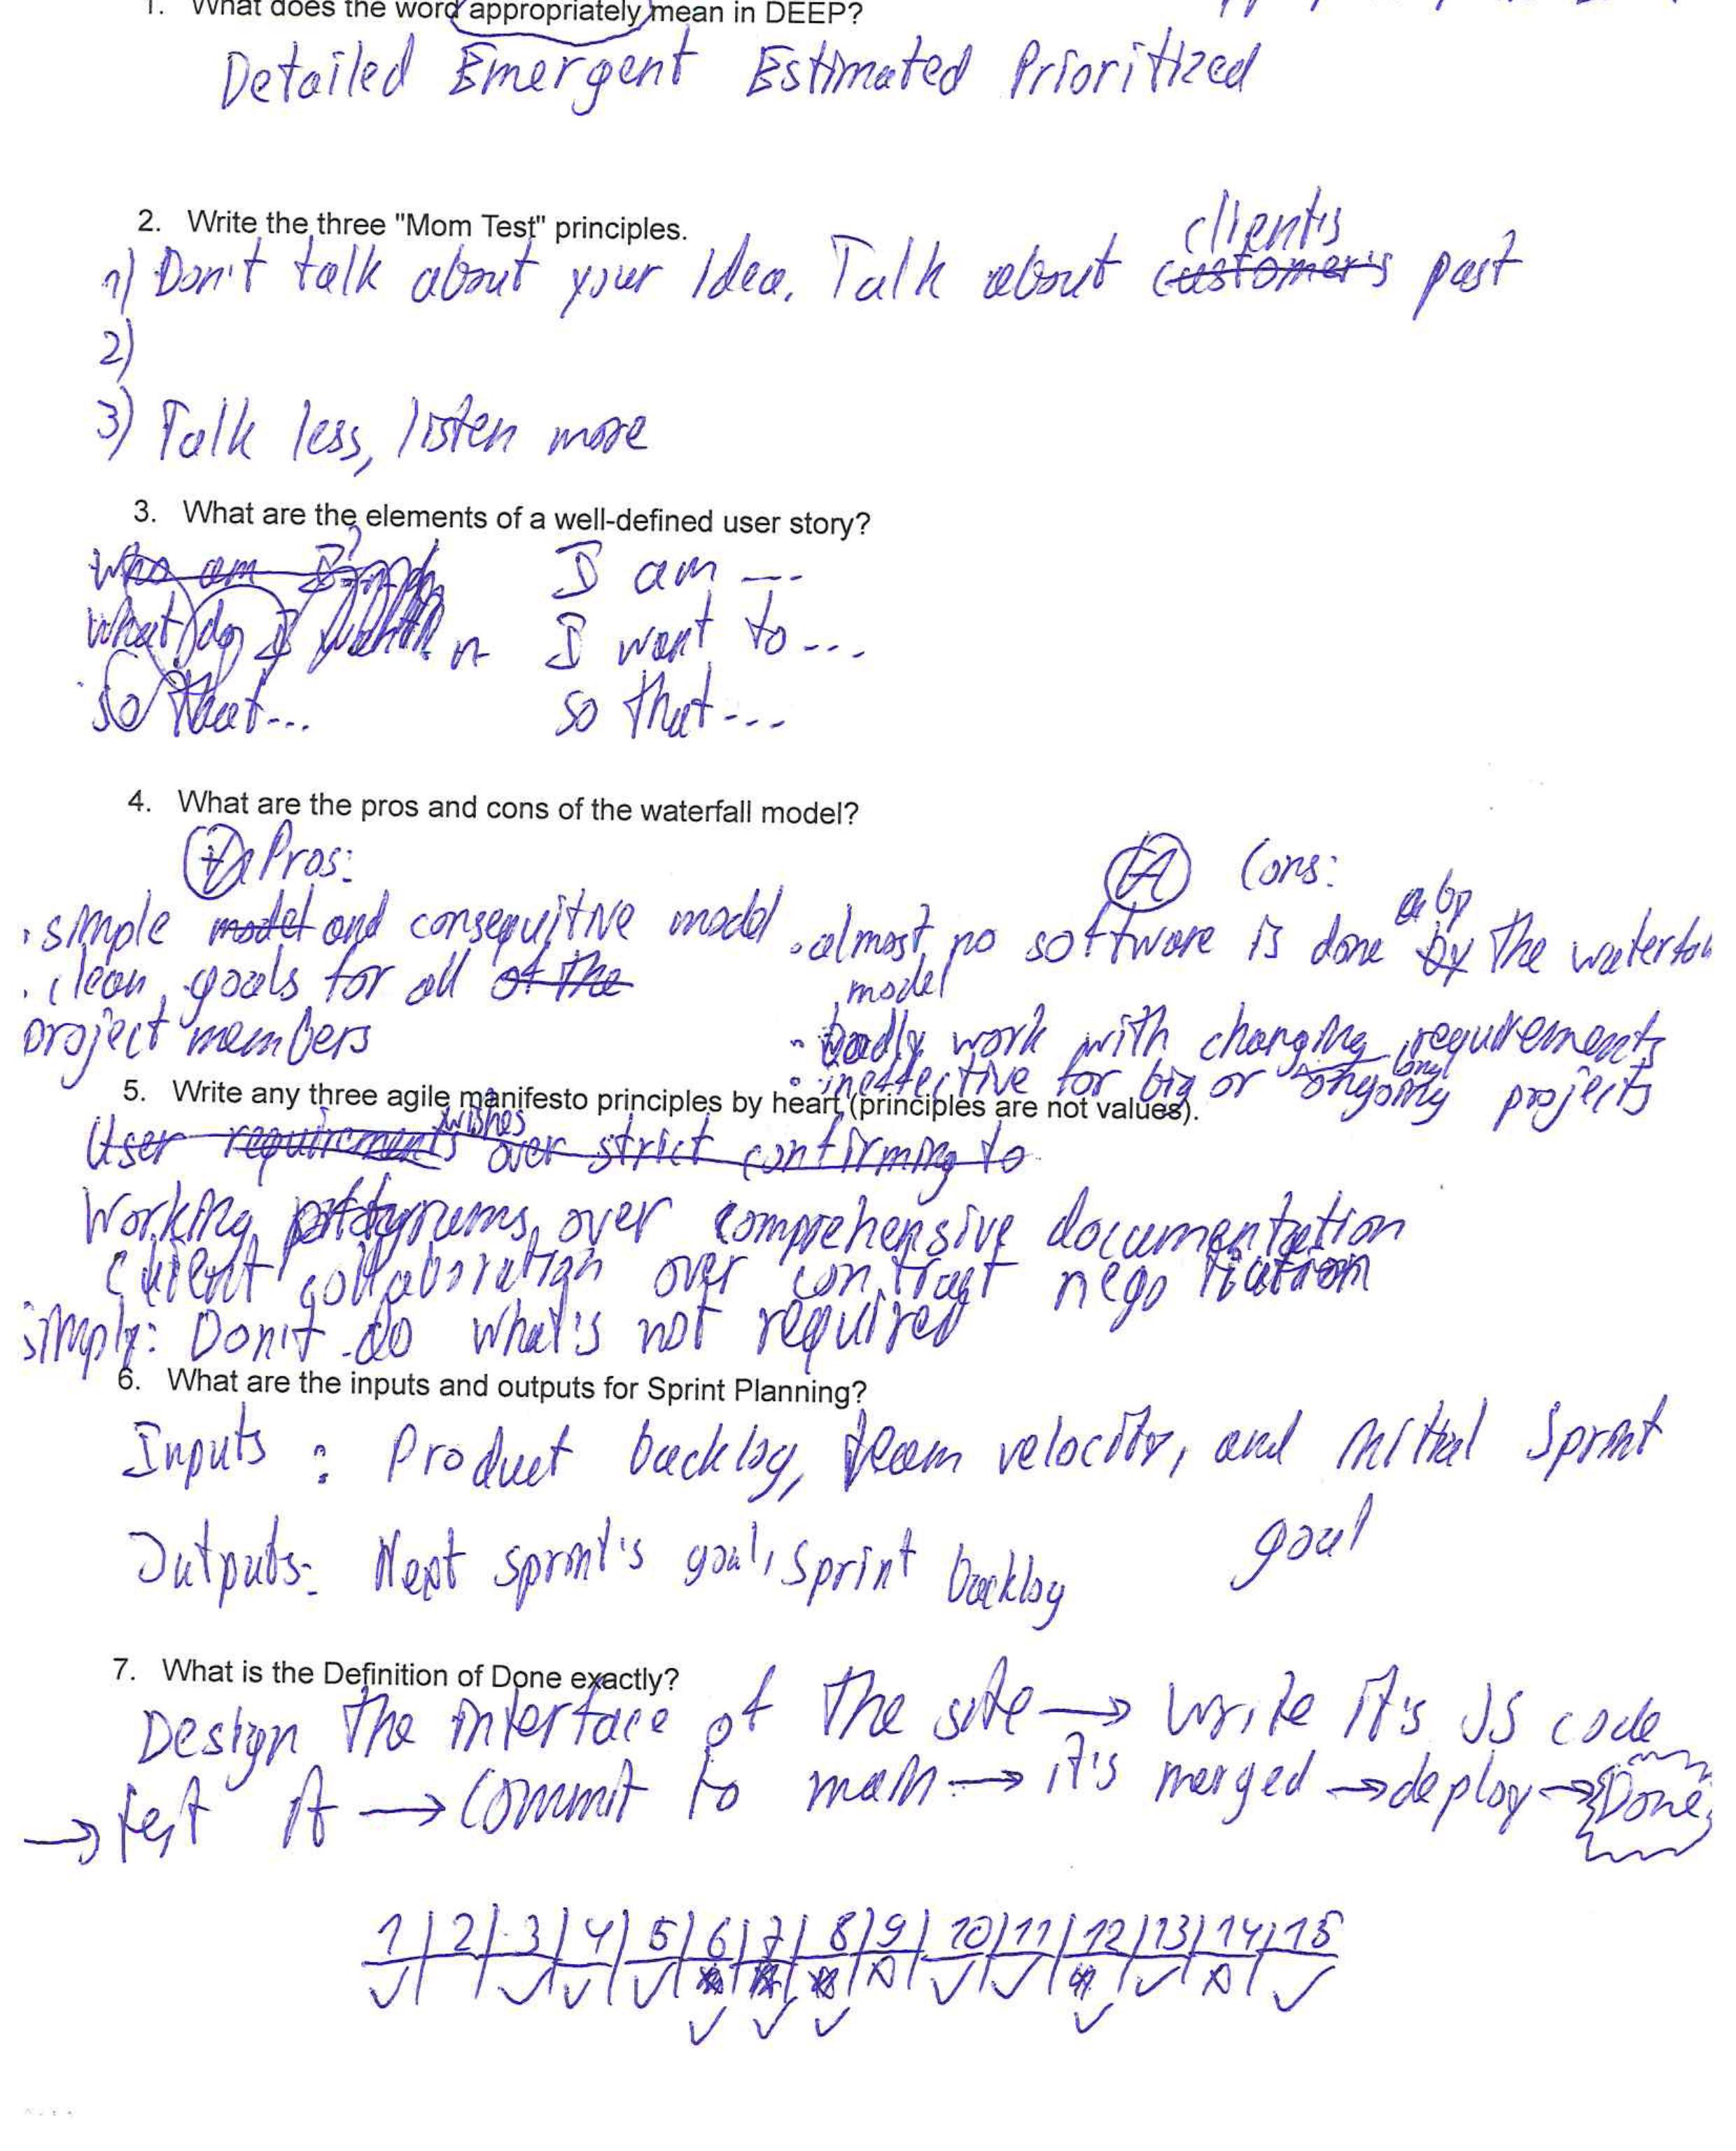 1. What does the word appropriately mean in DEEP?
Detailed Emergent Estimated Prioritized
2. Write the three "Mom Test" principles.
client's
1) Don't talk about your idea. Talk about customer's past
2)
3) Talk less, listen more
3. What are the elements of a well-defined user story?
Who am I? I am ---
What do I I want to ...
So that... so that ...
4. What are the pros and cons of the waterfall model?
+ Pros: Cons:
simple model and consequitive model
clean goals for all of the
project members
almost no software is done by the
model
badly work with changing requirements
ineffective for big or ongoing long projects
5. Write any three agile manifesto principles by heart (principles are not values).
wishes
User requirements over strict confirming to
Working over comprehensive documentation
Client collaboration over contract negotiation
simply: Don't do what's not required
6. What are the inputs and outputs for Sprint Planning?
Inputs : Product backlog, team velocity, and initial Sprint
goal
Outputs: Next sprint's goal, sprint backlog
7. What is the Definition of Done exactly?
Design the interface of the site → write it's JS code
→ test it → commit to main → it's merged → deploy → Done
1 | 2 | 3 | 4 | 5 | 6 | 7 | 8 | 9 | 10 | 11 | 12 | 13 | 14 | 15